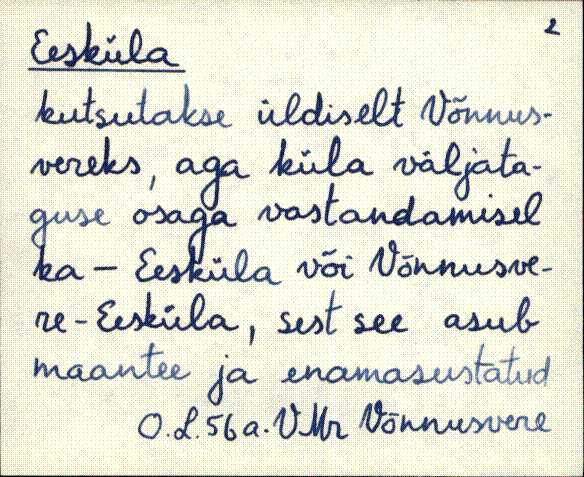 2
Eesküla
kutsutakse üldiselt Võnnus-
vereks, aga küla väljata-
guse osaga vastandamisel
ka - Eesküla või Võnnusve-
re-Eesküla, sest see asub
maantee ja enamasustatud
O.L. 56 a. VMr Võnnusvere